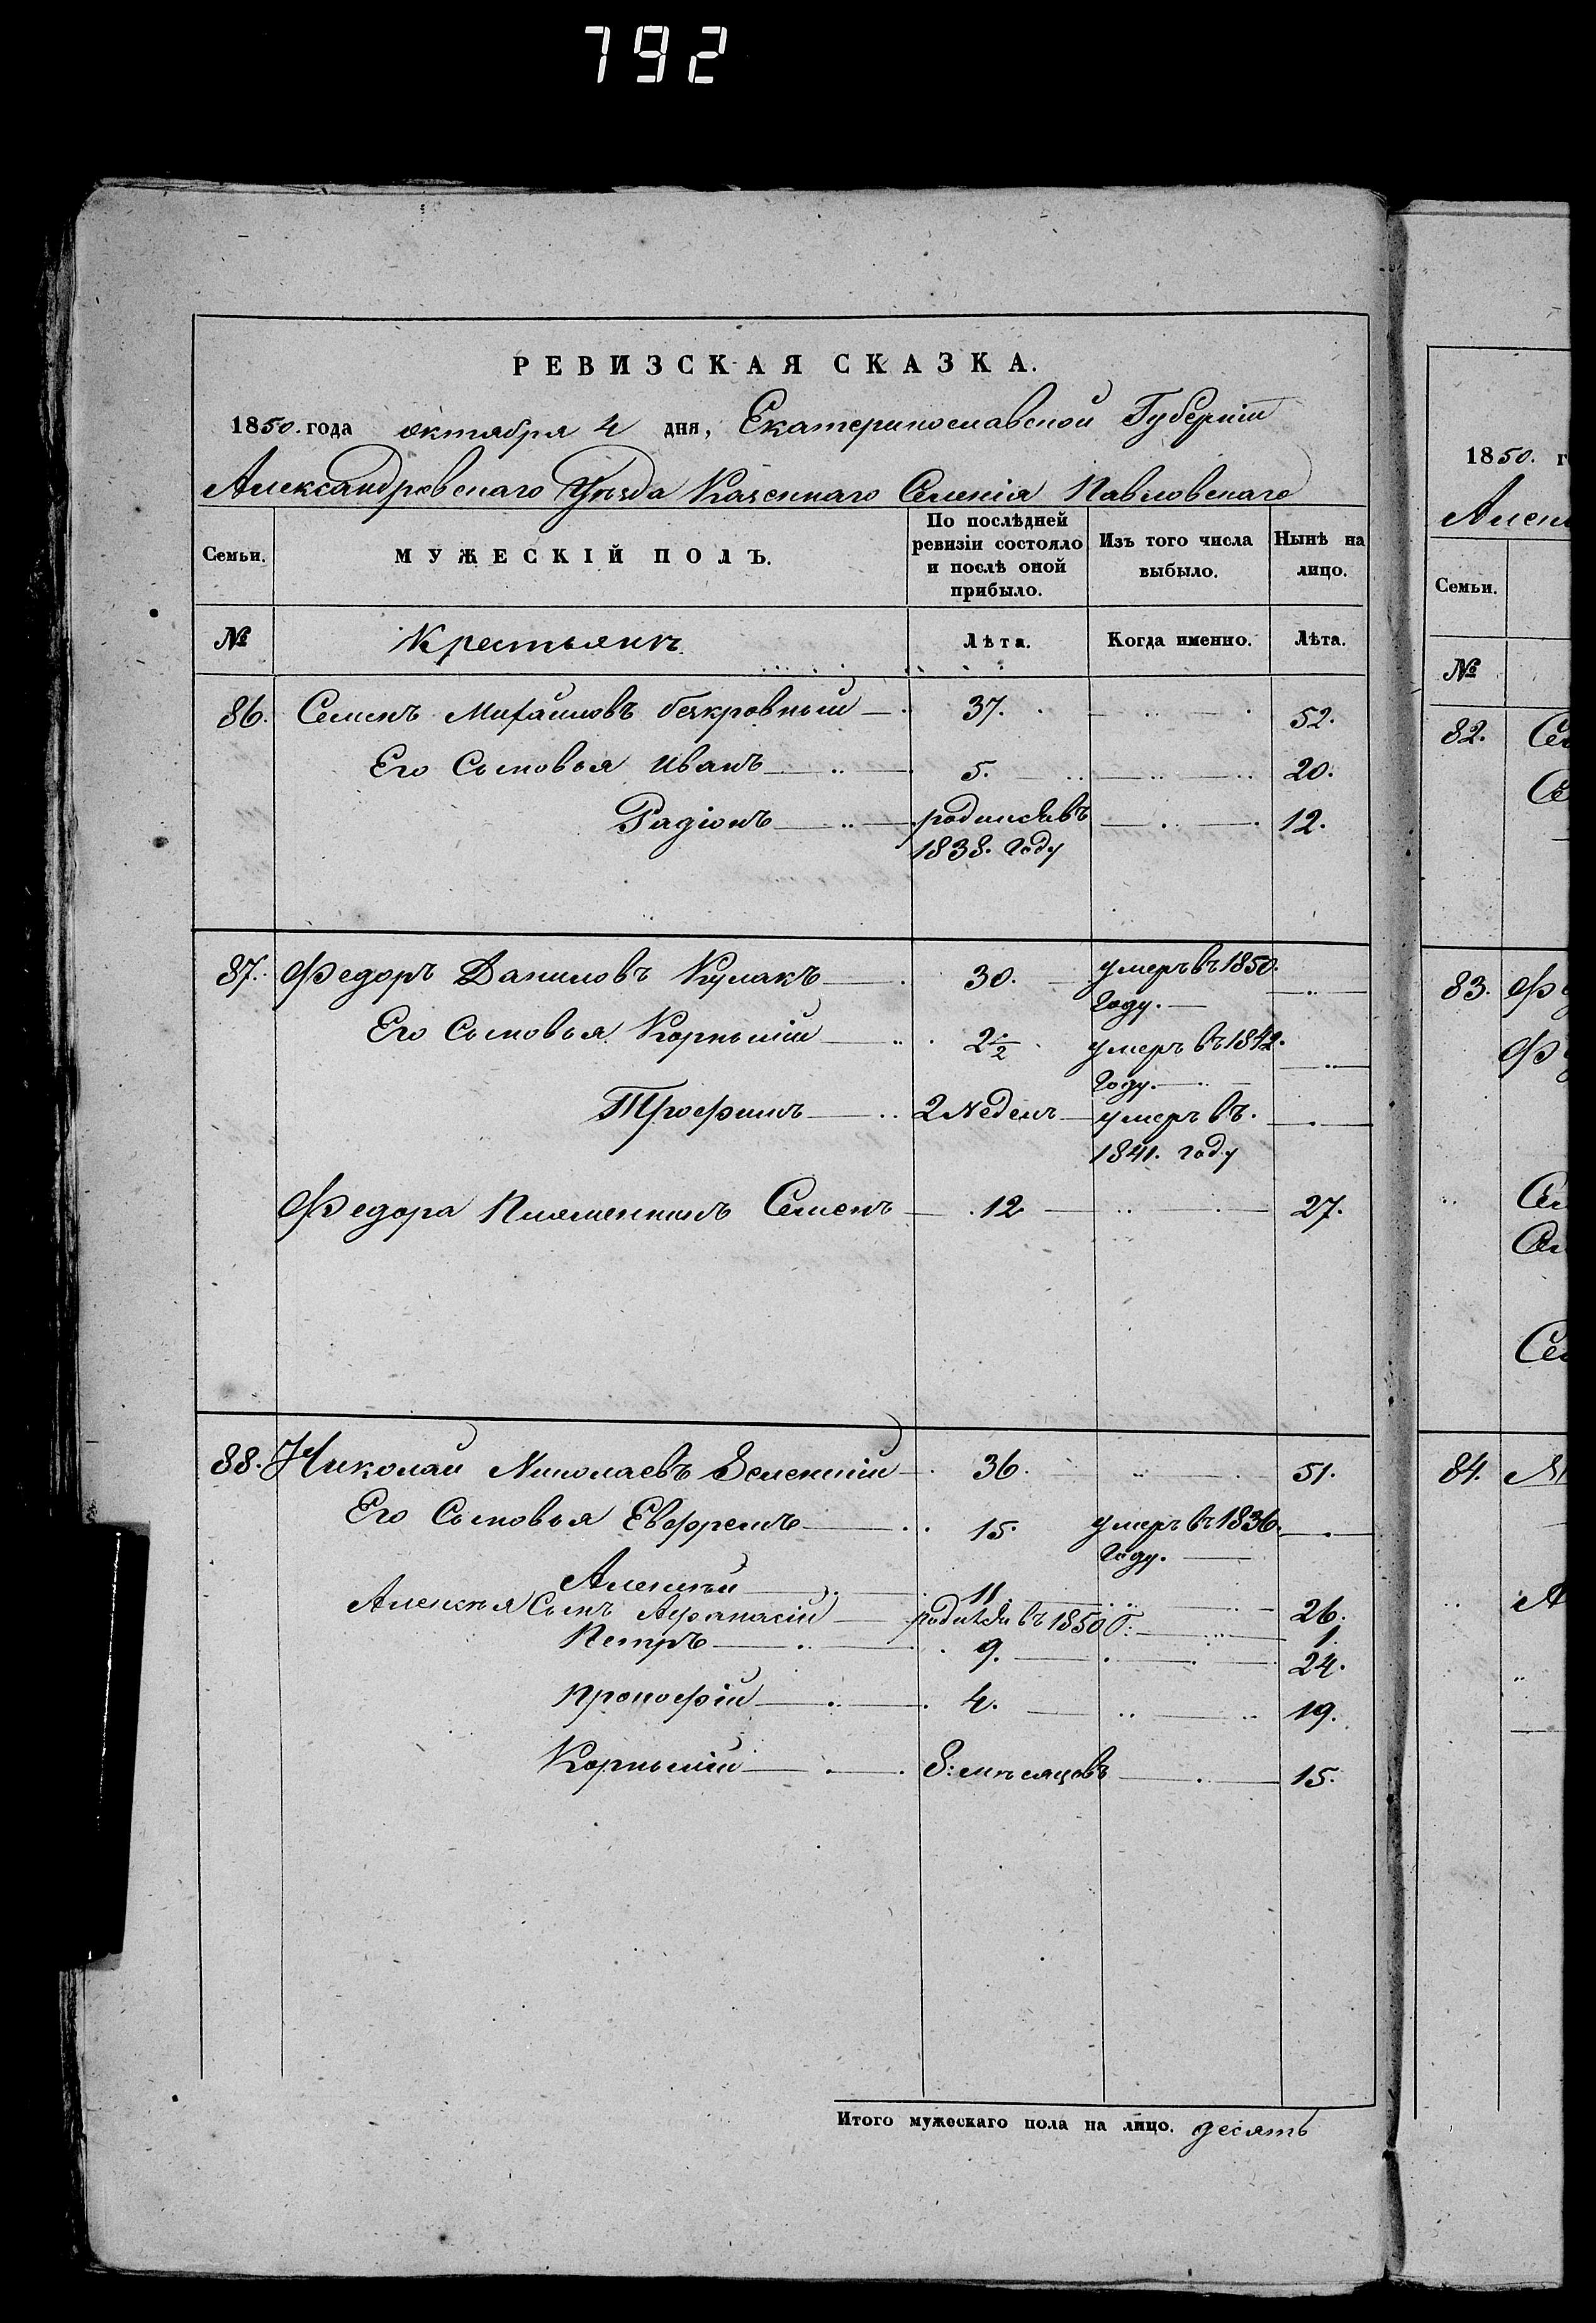 792
РЕВИЗСКАЯ СКАЗКА.
1850. года октября 4 дня, Екатеринославской Губерніи
Александровскаго Уѣзда Казеннаго Селенія Павловскаго
Семьи. МУЖЕСКІЙ ПОЛЪ. По послѣдней ревизіи состояло и послѣ оной прибыло. Изъ того числа выбыло. Нынѣ на лицо.
№ Крестьянъ. Лѣта. Когда именно. Лѣта.
86. Семенъ Михайловъ безкровный 37. 52.
Его Сыновья Иванъ 5. 20.
Радіонъ родился въ 12.
1838. Году
87. Федоръ Даниловъ Кулакъ 30. умеръ въ 1850.
Году.
Его Сыновья Корнылій 2 1/2 умеръ въ 1842.
Году.
Трофимъ 2 Недель умеръ въ.
1841. году
Федора Племенникъ Семенъ 12 27.
88. Николай Николаевъ Зеленскій 36. 51.
Его Сыновья Евфремъ 15. умеръ въ 1836.
Году.
Алексѣй 11. 26.
Алексѣя Сынъ Афанасій родился въ 1850 Г: 1.
Петръ 9. 24.
Прокофій 4. 19.
Корнылій 8: мѣсяцовъ 15.
Итого мужескаго пола на лицо. десять
1850. г
Алек
Семьи.
№
82. Се
Се
83. Ф
Ф
Се
Се
Се
84.
А